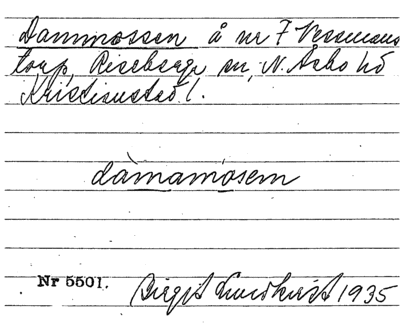 Dammossen å nr 7 Vessmans
torp, Riseberga sn, N. Åsbo hd
Kristianstad l.
dàmamosem
Nr 5501. Birgit Lundkvist 1935